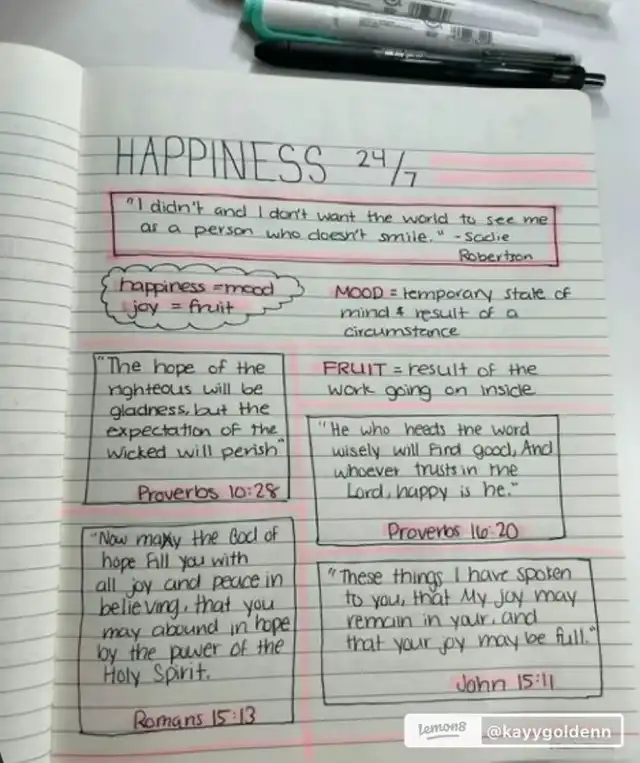 HAPPINESS 24/7
"I didn't and I don't want the world to see me
as a person who doesn't smile." - Sadie
Robertson
happiness = mood
joy = fruit
MOOD = temporary state of
mind & result of a
circumstance
FRUIT = result of the
work going on inside
"The hope of the
righteous will be
gladness, but the
expectation of the
wicked will perish"
Proverbs 10:28
"He who heeds the word
wisely will find good, And
whoever trusts in the
Lord, happy is he."
Proverbs 16:20
"Now may the God of
hope fill you with
all joy and peace in
believing, that you
may abound in hope
by the power of the
Holy Spirit.
Romans 15:13
"These things I have spoken
to you, that My joy may
remain in your, and
that your joy may be full."
John 15:11
Lemon8 @kayygoldenn